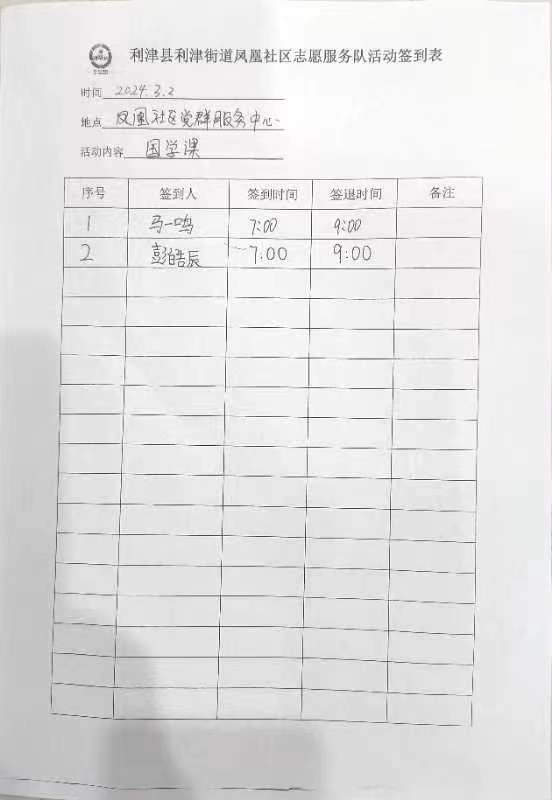 利津县利津街道凤凰社区志愿服务队活动签到表
时间 2024.3.2
地点 凤凰社区党群服务中心
活动内容 国学课
序号 签到人 签到时间 签退时间 备注
1 马一鸣 7:00 9:00
2 彭皓辰 7:00 9:00